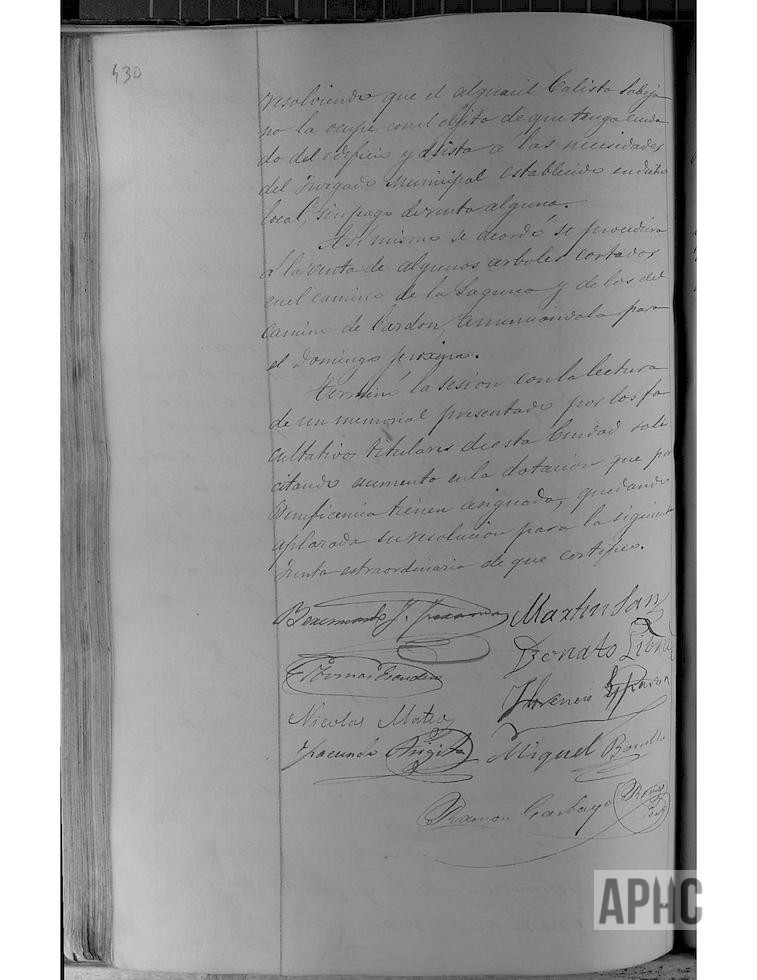 430
resolviendo que el alguacil Calisto Sobeja-
no la ocupe con el objeto de que tenga cuida-
do del edificio y asista a las necesidades
del Juzgado Municipal establecido en dicho
local, sin pago de renta alguna.
Asi mismo se acordó se procediera
a la venta de algunos arboles cortados
en el camino de la Laguna y de los del
camino de Cardon, anunciandola para
el Domingo proximo.
Terminó la sesion con la lectura
de un memorial presentado por los fa-
cultativos titulares de esta Ciudad soli
citando aumento en la dotacion que por
Beneficencia tienen asignada, quedando
aplazada su resolucion para la siguiente
Junta extraordinaria de que certifico.
Martin San
Donato
Tomas
Florencio
Nicolas Mateo
Facundo
Miguel Bonilla
Ramon Garbayo
APHC